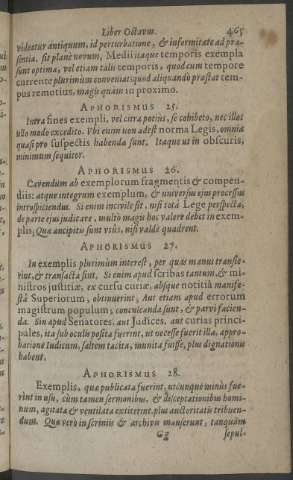 Liber Octavus. 465
videatur antiquum, id perturbatione, & infirmitate ad præ-
sentia. sit planè novum, Medii itaque temporis exempla
sunt optima, vel etiam talis temporis, quod cum tempore
currente plurimùm conveniat; quod aliquando præstat tem-
pus remotius, magis quàm in proximo.
APHORISMUS 25.
Intra fines exempli, vel citra potius, se cohibeto, nec illos
ullo modo excedito. Vbi enim non adest norma Legis, omnia
quasi pro suspectis habenda sunt. Itaque ut in obscuris,
minimum sequitor.
APHORISMUS 26.
Cavendum ab exemplorum fragmentis & compen-
diis: atque integrum exemplum, & universus ejus processus
introspiciendus. Si enim incivile sit, nisi totâ Lege perspectâ,
de parte ejus judicare, multò magis hoc valere debet in exem-
plis, Quæ ancipitis sunt vsûs, nisi valdè quadrent.
APHORISMUS 27.
In exemplis plurimùm interest, per quas manus transie-
rint, & transacta sint. Si enim apud scribas tantum, & mi-
nistros justitiæ, ex cursu curiæ, absque notitiâ manife-
stâ Superiorum, obtinuerint, Aut etiam apud errorum
magistrum populum; conculcanda sunt, & parvi facien-
da. Sin apud Senatores, aut Judices, aut curias princi-
pales, ita sub oculis posita fuerint, ut necesse fuerit illa, appro-
batione Iudicum, saltem tacitâ, munita fuisse, plus dignationis
habent.
APHORISMUS 28.
Exemplis, quæ publicata fuerint, utcunque minùs fue-
rint in usu, cùm tamen sermonibus, & disceptationibus homi-
num, agitata & ventilata extiterint, plus auctoritatis tribuen-
dum. Quæ verò in scriniis & archivis manserunt, tanquàm
Gg sepul-